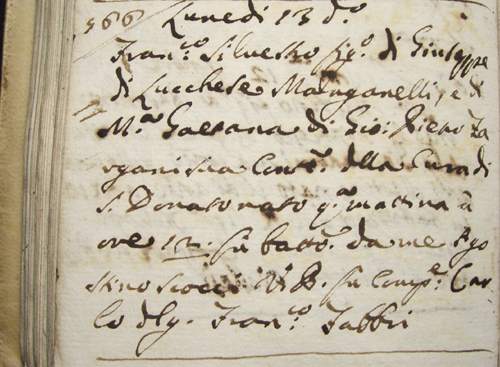 566 Lunedi 13 d.o
Fran.co Silvestro fig.o di Giuseppe
di Lucchese Malaganelli, e di
M.a Gaetana di Gio: Piero Za
rgani sua Cons.e della Cura di
S. Donato nato q.a mattina à
ore 12. fu batt.o da me Ago
stino Scocci V.B. fu Comp.e Car
lo dlg. Fran.co Fabbri